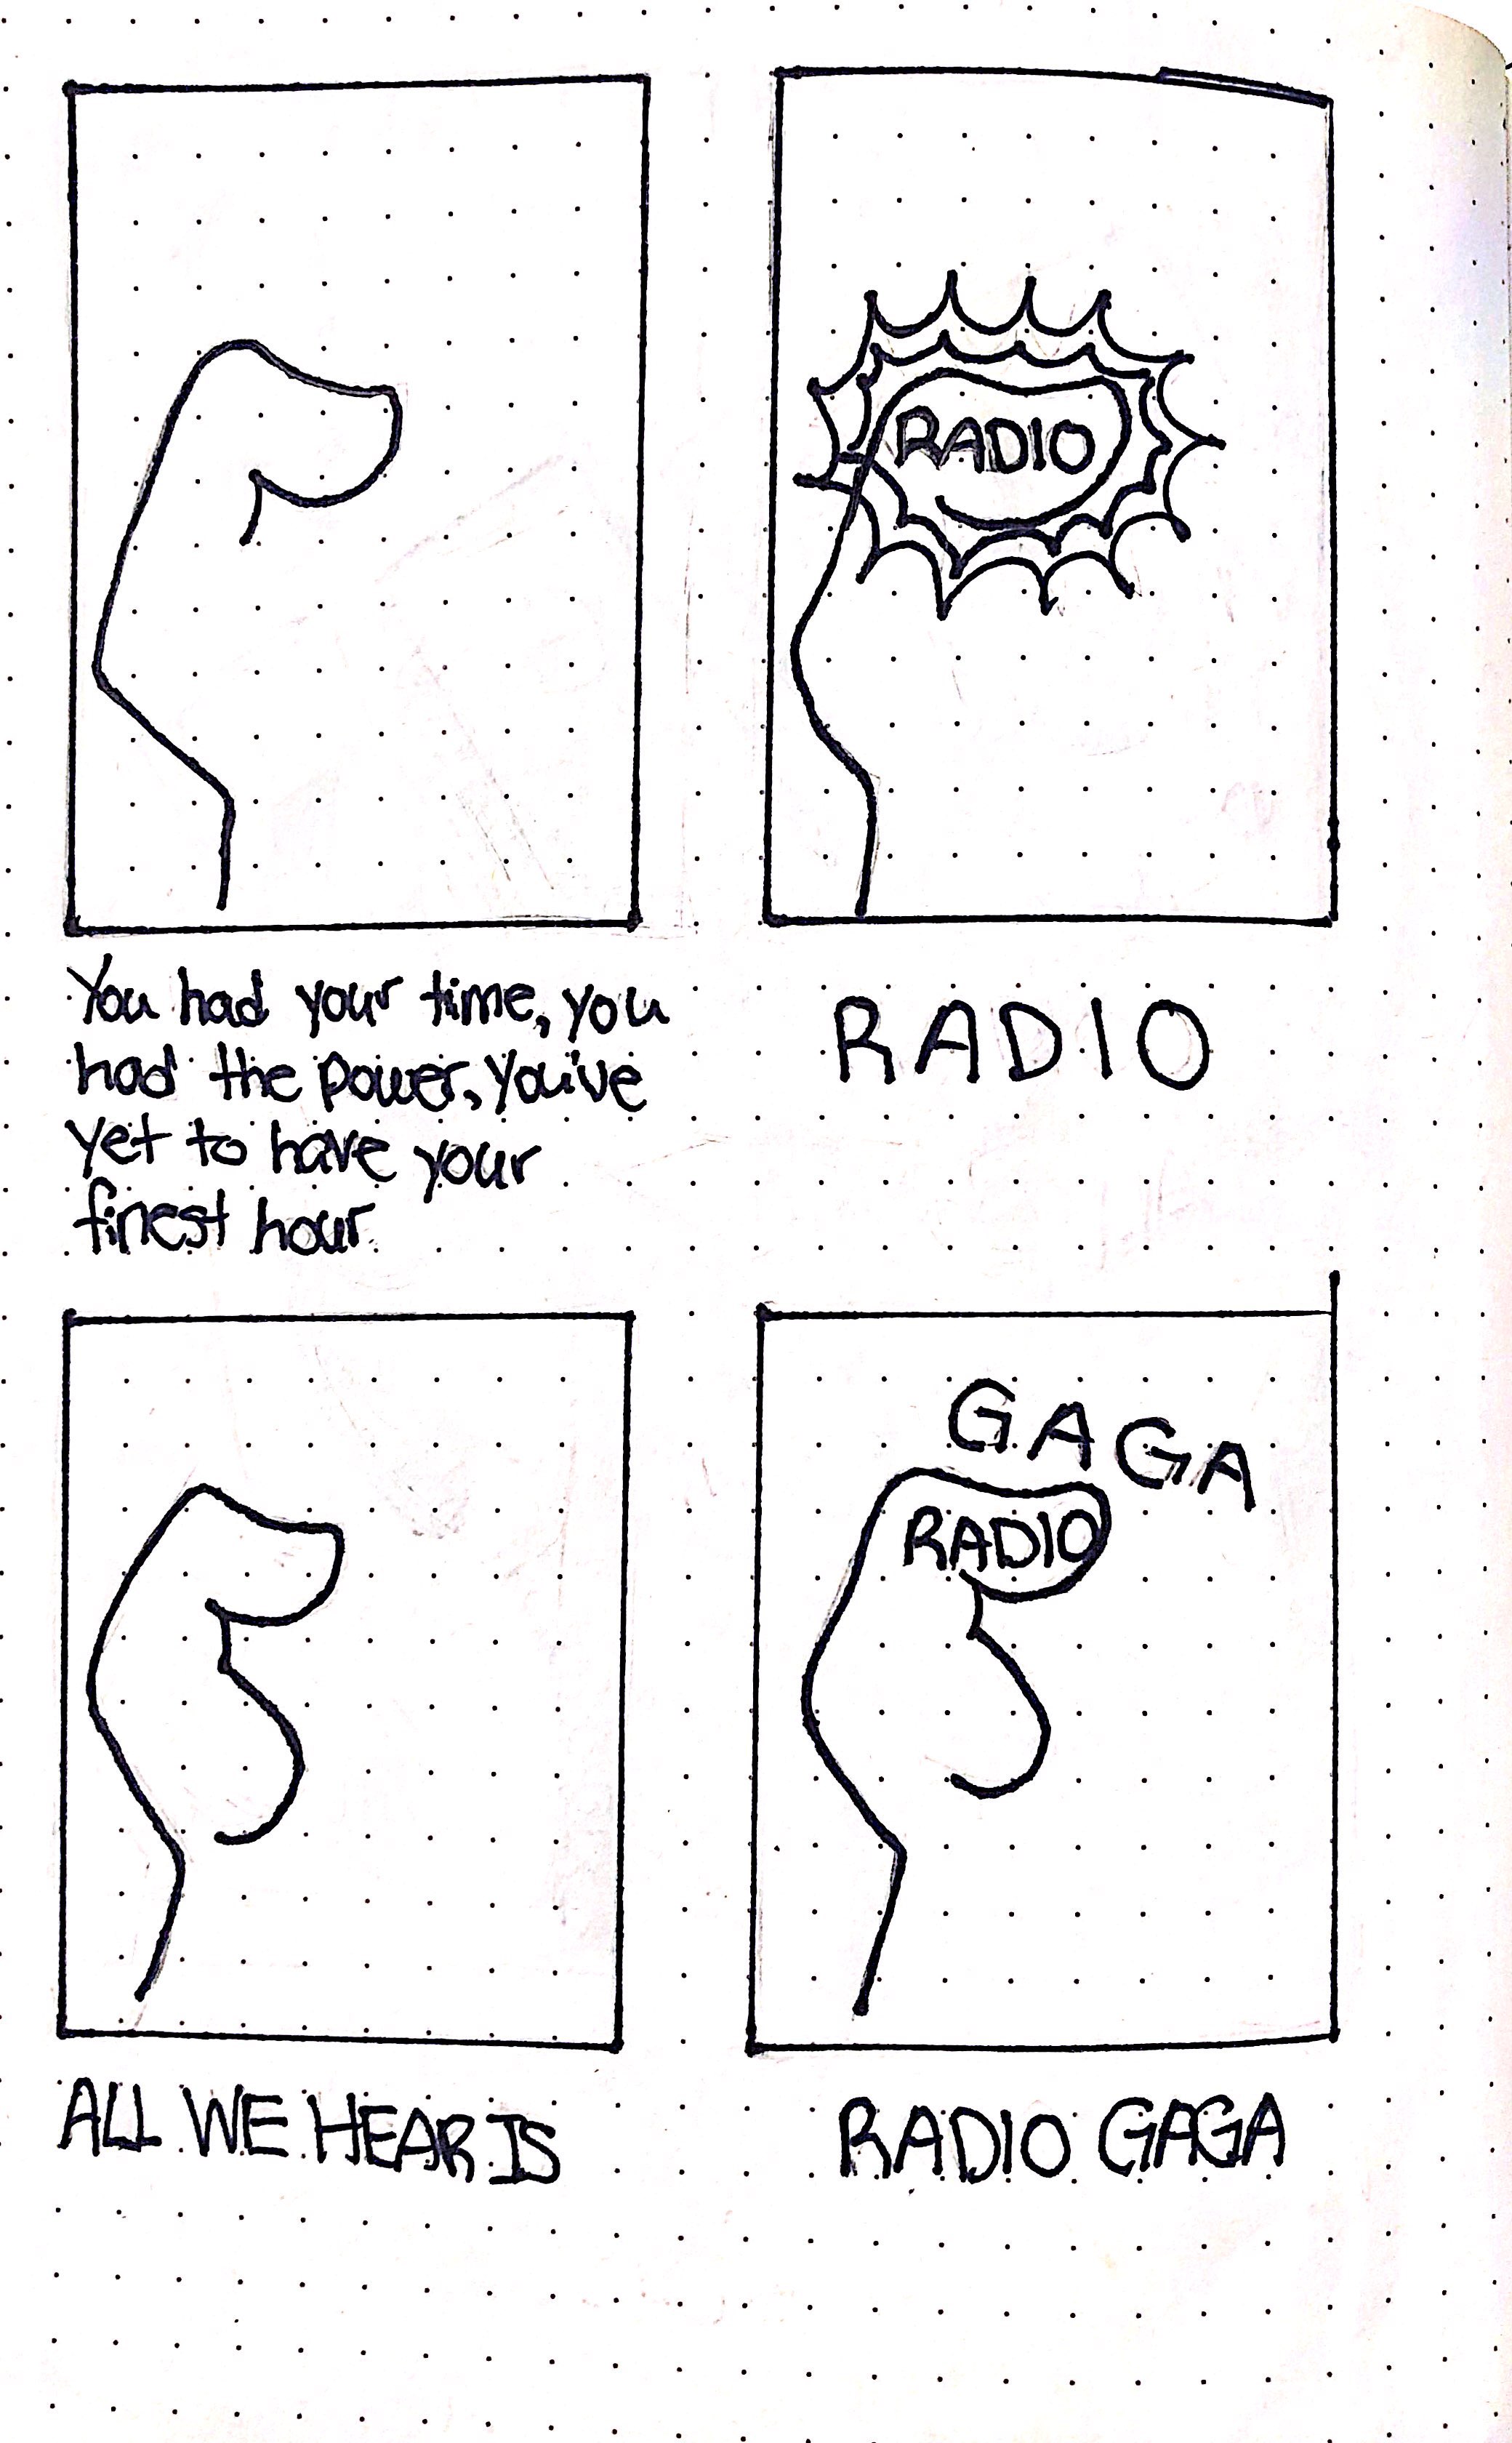 RADIO
You had your time, you
had the power, you've
yet to have your
finest hour.
RADIO
GAGA
RADIO
ALL WE HEAR IS
RADIO GAGA